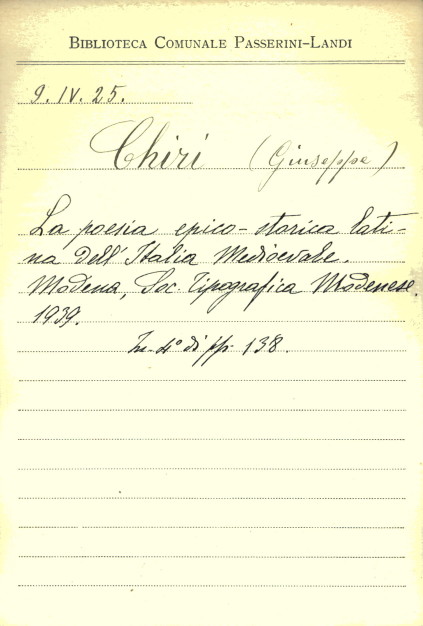 BIBLIOTECA COMUNALE PASSERINI-LANDI
9. IV. 25.
Chiri (Giuseppe)
La poesia epico-storica lati-
na dell'Italia Medioevale.
Modena, Soc. Tipografica Modenese.
1939.
In-4° di pp. 138.